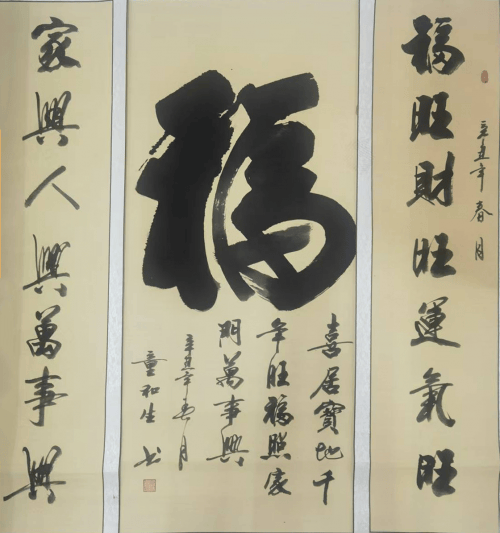 福旺財旺運氣旺
辛丑年春月
福
喜居寶地千
年旺福照家
門萬事興
辛丑年春月
童和生书
家興人興萬事興